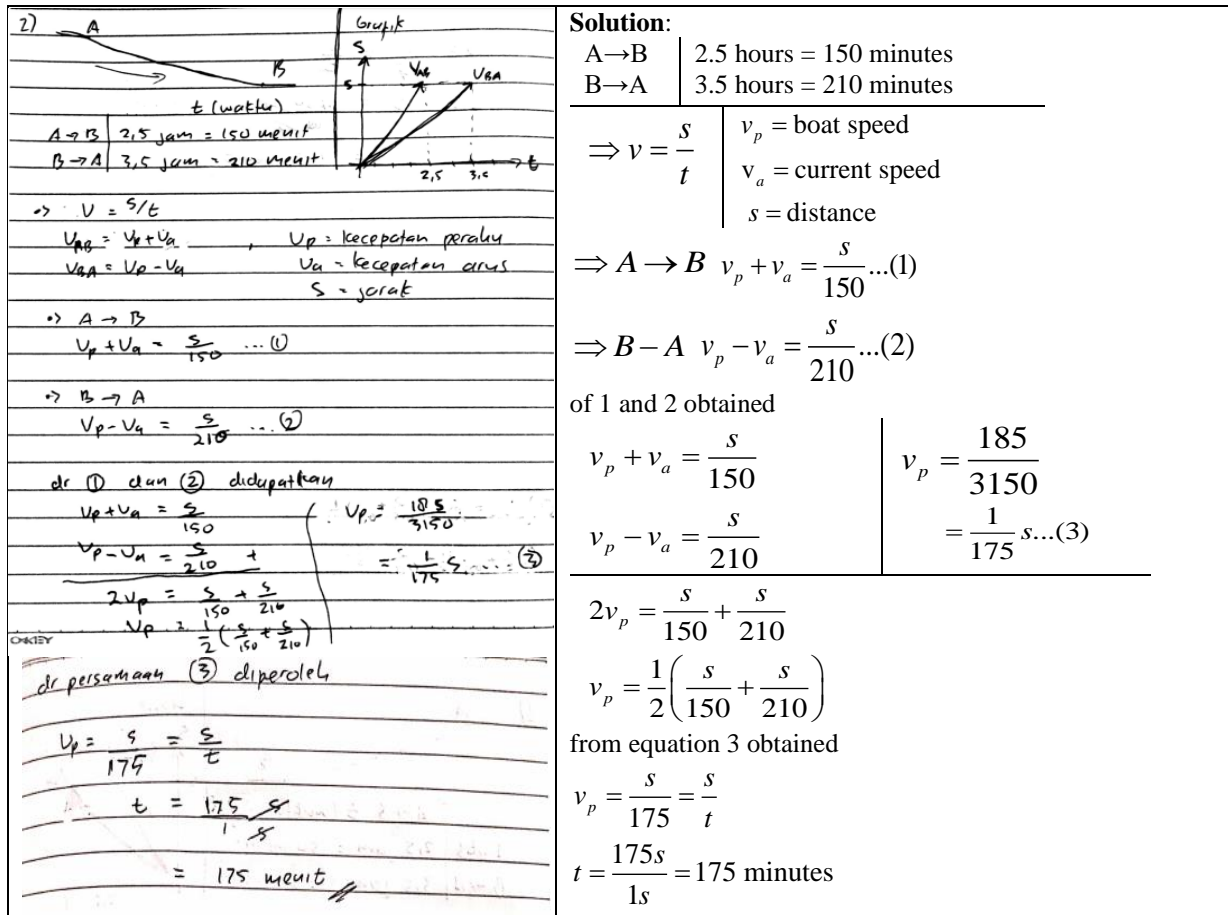 2)
A
B
t (waktu)
A → B | 2,5 jam = 150 menit
B → A | 3,5 jam = 210 menit
Grafik
S
S
V_AB
V_BA
2,5
3,5
t
•> V = S/t
V_AB = Vp + Va , Vp = kecepatan perahu
V_BA = Vp - Va Va = kecepatan arus
S = jarak
•> A → B
Vp + Va = S/150 ... ①
•> B → A
Vp - Va = S/210 ... ②
dr ① dan ② didapatkan
Vp + Va = S/150
Vp - Va = S/210 +
2Vp = S/150 + S/210
Vp = 1/2 (S/150 + S/210)
Vp = 18 S/3150
= 1/175 S ... ③
dr persamaan ③ diperoleh
Vp = S/175 = S/t
t = 175/1 S/S
= 175 menit
Solution:
A→B | 2.5 hours = 150 minutes
B→A | 3.5 hours = 210 minutes
⇒ v = s/t
v_p = boat speed
v_a = current speed
s = distance
⇒ A → B v_p + v_a = s/150 ...(1)
⇒ B − A v_p − v_a = s/210 ...(2)
of 1 and 2 obtained
v_p + v_a = s/150
v_p − v_a = s/210
v_p = 185/3150
= 1/175 s...(3)
2v_p = s/150 + s/210
v_p = 1/2 (s/150 + s/210)
from equation 3 obtained
v_p = s/175 = s/t
t = 175s/1s = 175 minutes